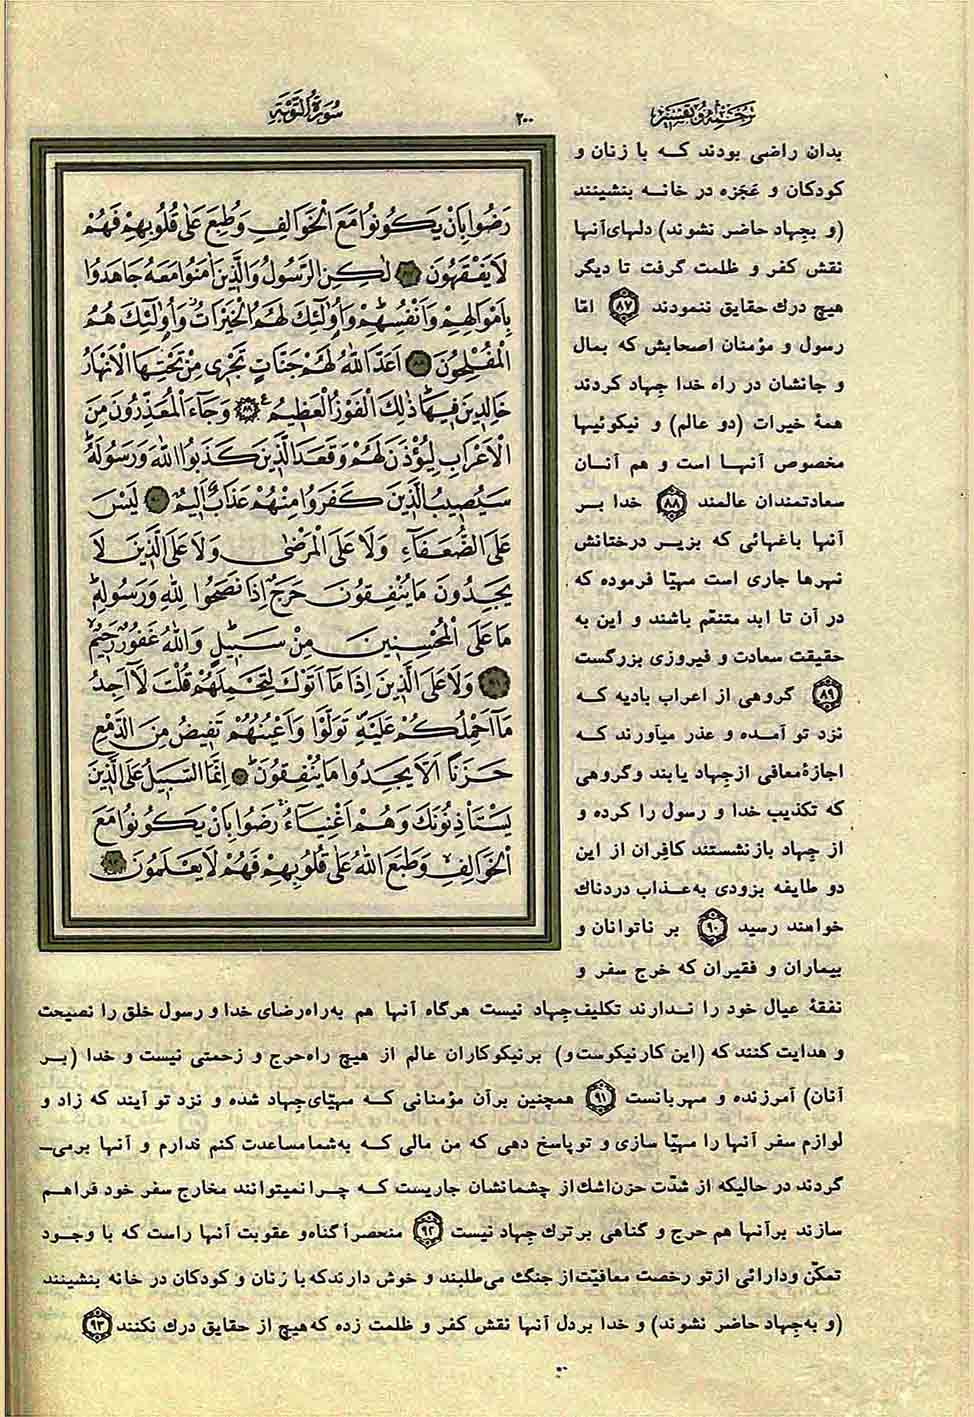 سُورَةُ التَّوْبَةِ
۲۰۰
ترجمه و تفسیر
رَضُوا بِاَنْ يَكُونُوا مَعَ الْخَوَالِفِ وَطُبِعَ عَلٰى قُلُوبِهِمْ فَهُمْ
لَا يَفْقَهُونَ ۸۷ لٰكِنِ الرَّسُولُ وَالَّذِينَ اٰمَنُوا مَعَهُ جَاهَدُوا
بِاَمْوَالِهِمْ وَاَنْفُسِهِمْ وَاُولٰٓئِكَ لَهُمُ الْخَيْرَاتُ وَاُولٰٓئِكَ هُمُ
الْمُفْلِحُونَ ۸۸ اَعَدَّ اللّٰهُ لَهُمْ جَنَّاتٍ تَجْرِى مِنْ تَحْتِهَا الْاَنْهَارُ
خَالِدِينَ فِيهَا ذٰلِكَ الْفَوْزُ الْعَظِيمُ ۸۹ وَجَاءَ الْمُعَذِّرُونَ مِنَ
الْاَعْرَابِ لِيُؤْذَنَ لَهُمْ وَقَعَدَ الَّذِينَ كَذَبُوا اللّٰهَ وَرَسُولَهُ
سَيُصِيبُ الَّذِينَ كَفَرُوا مِنْهُمْ عَذَابٌ اَلِيمٌ ۹۰ لَيْسَ
عَلَى الضُّعَفَاءِ وَلَا عَلَى الْمَرْضٰى وَلَا عَلَى الَّذِينَ لَا
يَجِدُونَ مَا يُنْفِقُونَ حَرَجٌ اِذَا نَصَحُوا لِلّٰهِ وَرَسُولِهِ
مَا عَلَى الْمُحْسِنِينَ مِنْ سَبِيلٍ وَاللّٰهُ غَفُورٌ رَحِيمٌ
۹۱ وَلَا عَلَى الَّذِينَ اِذَا مَا اَتَوْكَ لِتَحْمِلَهُمْ قُلْتَ لَا اَجِدُ
مَا اَحْمِلُكُمْ عَلَيْهِ تَوَلَّوْا وَاَعْيُنُهُمْ تَفِيضُ مِنَ الدَّمْعِ
حَزَنًا اَلَّا يَجِدُوا مَا يُنْفِقُونَ ۹۲ اِنَّمَا السَّبِيلُ عَلَى الَّذِينَ
يَسْتَاْذِنُونَكَ وَهُمْ اَغْنِيَاءُ رَضُوا بِاَنْ يَكُونُوا مَعَ
الْخَوَالِفِ وَطَبَعَ اللّٰهُ عَلٰى قُلُوبِهِمْ فَهُمْ لَا يَعْلَمُونَ ۹۳
بدان راضی بودند که با زنان و
کودکان و عَجَزه در خانه بنشینند
(و بجهاد حاضر نشوند) دلهای آنها
نقش کفر و ظلمت گرفت تا دیگر
هیچ درك حقایق ننمودند ۸۷ امّا
رسول و مؤمنان اصحابش که بمال
و جانشان در راه خدا جهاد کردند
همهٔ خیرات (دو عالم) و نیکوئیها
مخصوص آنها است و هم آنان
سعادتمندان عالمند ۸۸ خدا بر
آنها باغهائی که بزیر درختانش
نهرها جاری است مهیّا فرموده که
در آن تا ابد متنعّم باشند و این به
حقیقت سعادت و فیروزی بزرگست
۸۹ گروهی از اعراب بادیه که
نزد تو آمده و عذر میآورند که
اجازهٔ معافی از جهاد یابند و گروهی
که تکذیب خدا و رسول را کرده و
از جهاد بازنشستند کافران از این
دو طایفه بزودی به عذاب دردناك
خواهند رسید ۹۰ بر ناتوانان و
بیماران و فقیران که خرج سفر و
نفقهٔ عیال خود را ندارند تکلیف جهاد نیست هرگاه آنها هم به راه رضای خدا و رسول خلق را نصیحت
و هدایت کنند که (این کار نیکوست و) بر نیکوکاران عالم از هیچ راه حرج و زحمتی نیست و خدا (بر
آنان) آمرزنده و مهربانست ۹۱ همچنین بر آن مؤمنانی که مهیّای جهاد شده و نزد تو آیند که زاد و
لوازم سفر آنها را مهیّا سازی و تو پاسخ دهی که من مالی که به شما مساعدت کنم ندارم و آنها برمی‌ـ
گردند در حالیکه از شدّت حزن اشك از چشمانشان جاریست که چرا نمیتوانند مخارج سفر خود فراهم
سازند بر آنها هم حرج و گناهی بر ترك جهاد نیست ۹۲ منحصراً گناه و عقوبت آنها راست که با وجود
تمکّن و دارائی از تو رخصت معافیّت از جنگ می‌طلبند و خوش دارند که با زنان و کودکان در خانه بنشینند
(و به جهاد حاضر نشوند) و خدا بر دل آنها نقش کفر و ظلمت زده که هیچ از حقایق درك نکنند ۹۳